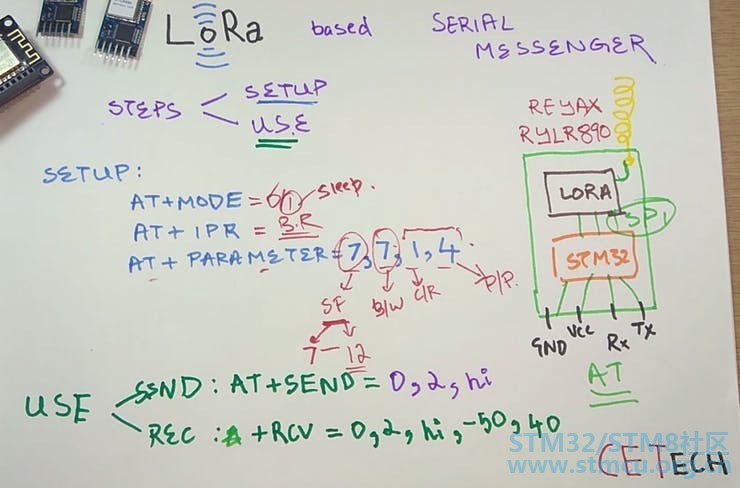 LoRa based SERIAL MESSENGER
STEPS
SETUP
USE
SETUP:
AT+MODE = 0/1 sleep.
AT+IPR = B.R
AT+PARAMETER = 7,7,1,4
SF B/W C/R P/P.
7-12
REYAX
RYLR890
LORA
SPI
STM32
GND Vcc Rx Tx
AT
USE
SEND: AT+SEND = 0,2,hi
REC: +RCV = 0,2,hi,-50,40
STM32/STM8社区
www.stmcu.org.cn
CETECH